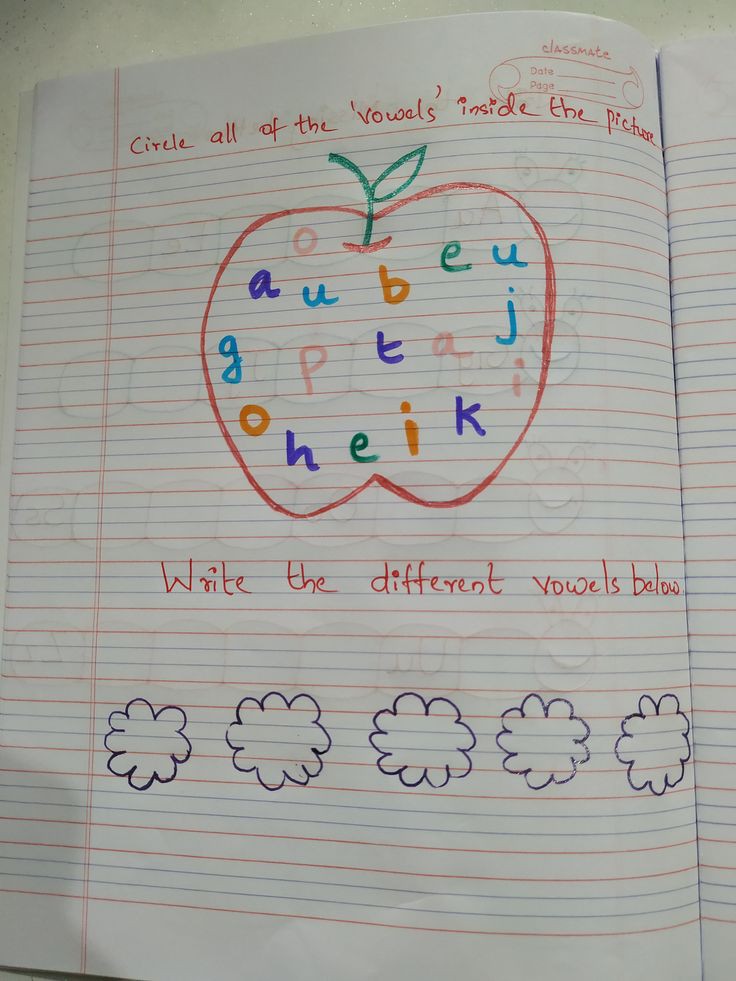 classmate
Date
Page
Circle all of the 'vowels' inside the picture
o
e u
a u b
j
g p t a
i
o h e i k
Write the different vowels below.